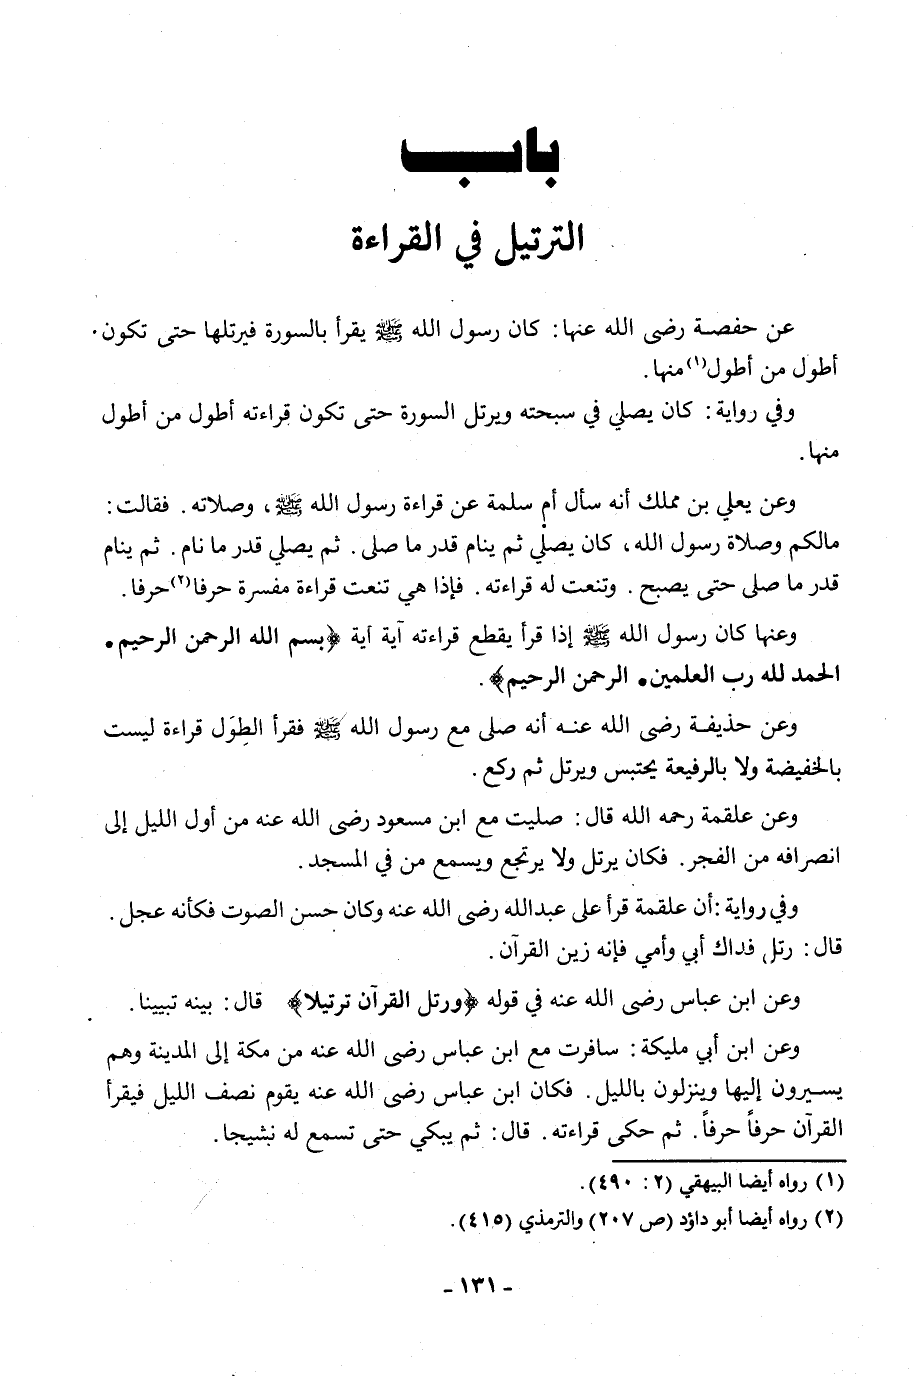 باب
الترتيل في القراءة
عن حفصة رضى الله عنها: كان رسول الله ﷺ يقرأ بالسورة فيرتلها حتى تكون
أطول من أطول(١) منها.
وفي رواية: كان يصلي في سبحته ويرتل السورة حتى تكون قراءته أطول من أطول
منها.
وعن يعلي بن مملك أنه سأل أم سلمة عن قراءة رسول الله ﷺ، وصلاته. فقالت:
مالكم وصلاة رسول الله، كان يصلي ثم ينام قدر ما صلى. ثم يصلي قدر ما نام. ثم ينام
قدر ما صلى حتى يصبح. وتنعت له قراءته. فإذا هي تنعت قراءة مفسرة حرفا(٢) حرفا.
وعنها كان رسول الله ﷺ إذا قرأ يقطع قراءته آية آية ﴿بسم الله الرحمن الرحيم •
الحمد لله رب العلمين • الرحمن الرحيم﴾.
وعن حذيفة رضى الله عنه أنه صلى مع رسول الله ﷺ فقرأ الطِوَل قراءة ليست
بالخفيضة ولا بالرفيعة يحتبس ويرتل ثم ركع.
وعن علقمة رحمه الله قال: صليت مع ابن مسعود رضى الله عنه من أول الليل إلى
انصرافه من الفجر. فكان يرتل ولا يرتجع ويسمع من في المسجد.
وفي رواية: أن علقمة قرأ على عبدالله رضى الله عنه وكان حسن الصوت فكأنه عجل.
قال: رتل فداك أبي وأمي فإنه زين القرآن.
وعن ابن عباس رضى الله عنه في قوله ﴿ورتل القرآن ترتيلا﴾ قال: بينه تبيينا.
وعن ابن أبي مليكة: سافرت مع ابن عباس رضى الله عنه من مكة إلى المدينة وهم
يسيرون إليها وينزلون بالليل. فكان ابن عباس رضى الله عنه يقوم نصف الليل فيقرأ
القرآن حرفاً حرفاً. ثم حكى قراءته. قال: ثم يبكي حتى تسمع له نشيجا.
(١) رواه أيضا البيهقي (٢: ٤٩٠).
(٢) رواه أيضا أبو داؤد (ص ٢٠٧) والترمذي (٤١٥).
- ١٣١ -